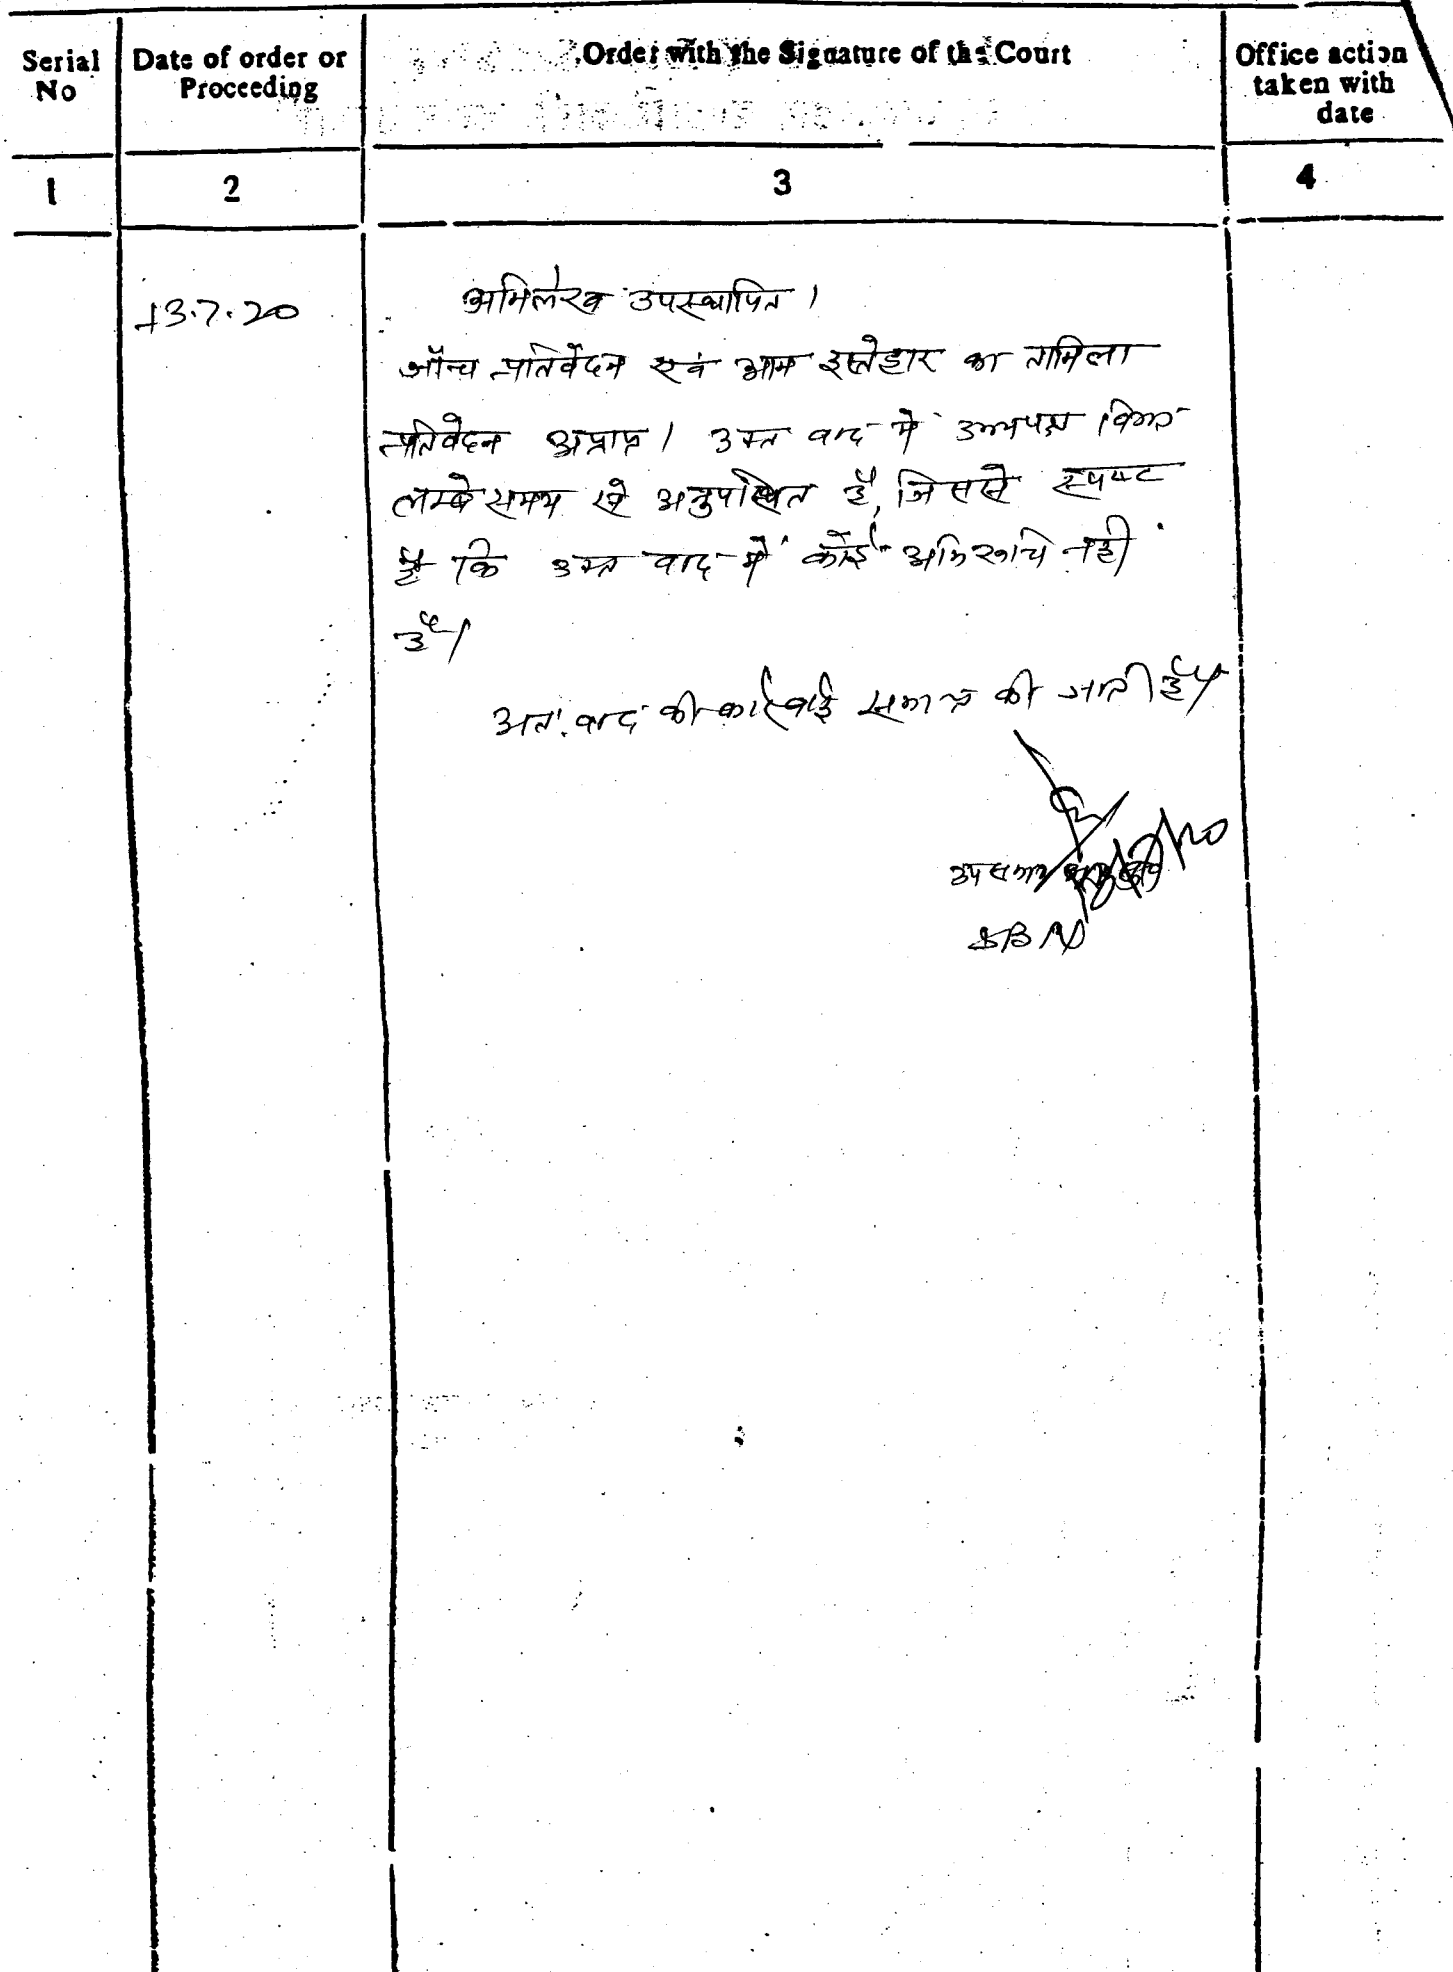 Serial No
Date of order or Proceeding
Order with the Signature of the Court
Office action taken with date
1
2
3
4
13.7.20
अभिलेख उपस्थापित।
जाँच प्रतिवेदन एवं आम इस्तेहार का तामिला
प्रतिवेदन अप्राप्त। उक्त वाद में उभयपक्ष विगत
लम्बे समय से अनुपस्थित है, जिससे स्पष्ट
है कि उक्त वाद में कोई अभिरूचि नही
है।
अतः वाद की कार्रवाई समाप्त की जाती है।